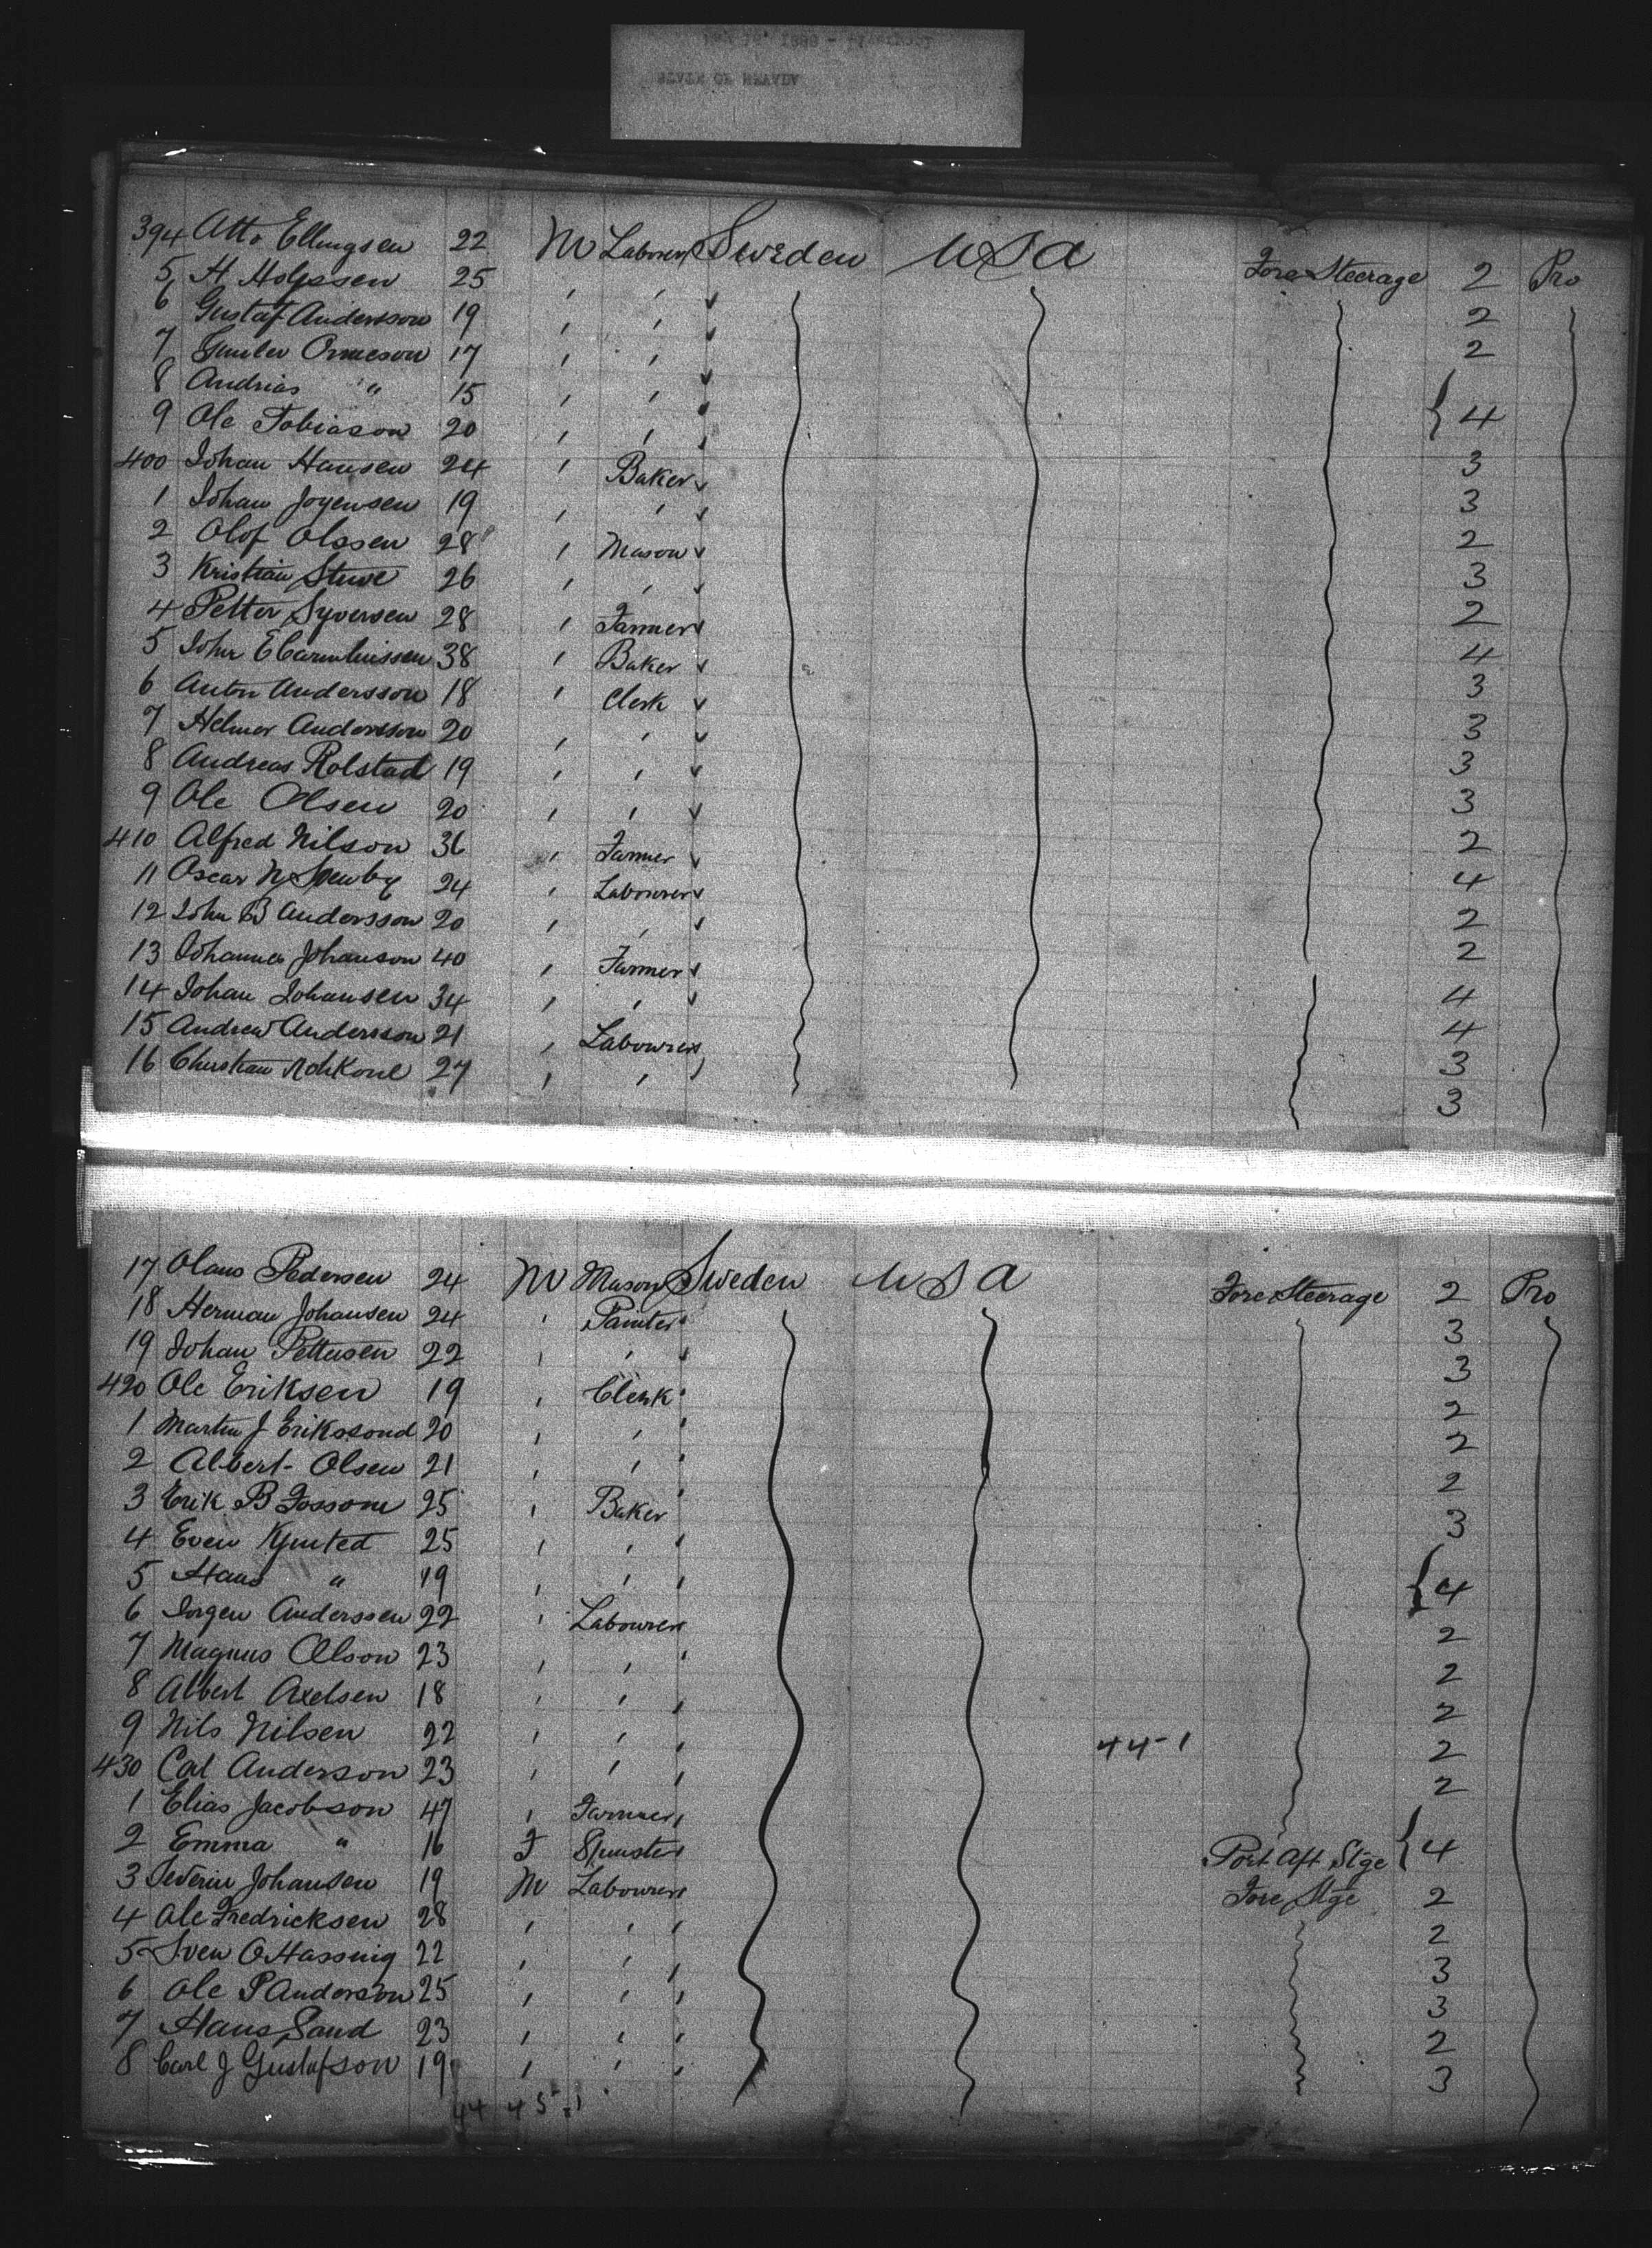 394 Atto Ellingsen 22 M Labourer Sweden USA Fore Steerage 2 Pro
5 H Holgssen 25 , , 2
6 Gustaf Andersson 19 , , 2
7 Ormeson 17 , ,
8 Andrias " 15 , , { 4
9 Ole Tobiason 20 , , 3
400 Johan Hansen 24 , Baker 3
1 Johan Joyensen 19 , , 2
2 Olof Olssen 28 , Mason 3
3 Kristian 26 , , 2
4 Petter Syversen 28 , Farmer 4
5 John E 38 , Baker 3
6 Anton Andersson 18 , Clerk 3
7 Helmer Andersson 20 , , 3
8 Andreas Rolstad 19 , , 3
9 Ole Olsen 20 , , 2
410 Alfred Nilson 36 , Farmer 4
11 Oscar N 24 , Labourer 2
12 John B Andersson 20 , , 2
13 Johannes Johanson 40 , Farmer 4
14 Johan Johansen 34 , , 4
15 Andrew Andersson 21 , Labourer 3
16 Christian 27 , , 3
17 Olaus Pedersen 24 M Mason Sweden USA Fore Steerage 2 Pro
18 Herman Johansen 24 , Painter 3
19 Johan Pettersen 22 , , 3
420 Ole Eriksen 19 , Clerk 2
1 Martin J Erikssond 20 , , 2
2 Albert Olsen 21 , , 2
3 Erik B Fossom 25 , Baker 3
4 Even 25 , ,
5 Hans " 19 , , { 4
6 Jorgen Anderssen 22 , Labourer 2
7 Magnus Olson 23 , , 2
8 Albert Axelsen 18 , , 2
9 Nils Nilsen 22 , , 44-1 2
430 Carl Anderson 23 , , 2
1 Elias Jacobson 47 , Farmer
2 Emma " 16 F Spinster Port Aft Stge { 4
3 Severin Johansen 19 M Labourer Fore Stge 2
4 Ole Fredricksen 28 , , 2
5 Sven O Hassnig 22 , , 3
6 Ole P Anderson 25 , , 3
7 Hans Sand 23 , , 2
8 Carl J Gustafson 19 , , 3
44 45-1